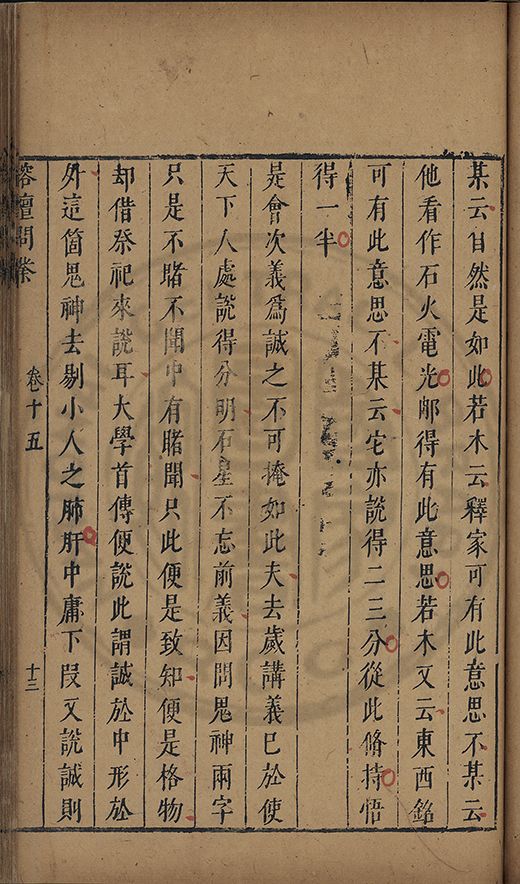 某云自然是如此若木云釋家可有此意思不某云
他看作石火電光那得有此意思若木又云東西銘
可有此意思不某云它亦說得二三分從此脩持悟
得一半
是會次義為誠之不可掩如此夫去歲講義已於使
天下人處說得分明石星不忘前義因問鬼神兩字
只是不睹不聞中有睹聞只此便是致知便是格物
却借祭祀來說耳大學首傳便說此謂誠於中形於
外這箇鬼神去剔小人之肺肝中庸下段又說誠則
榕壇問業 卷十五 十三